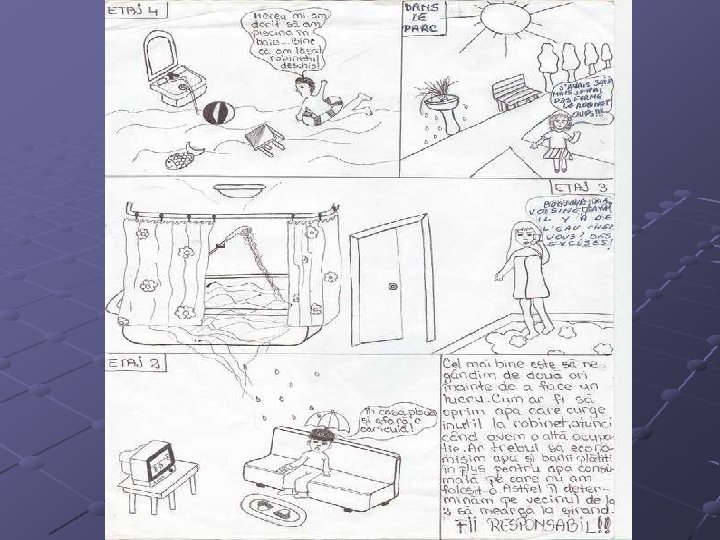 ETAJ 4
Mereu mi-am
dorit să am
piscina în
baie... Bine
că am lăsat
robinetul
deschis!
DANS
LE
PARC
J'AVAIS SOIF
MAIS J'AVAI
LE ROBINET
ETAJ 3
VOISINE
IL Y A DE
L'EAU CHEZ
VOUS? DES
EXCUSES!
ETAJ 2
În casă plouă
și afară e
caniculă!
Cel mai bine este să ne
gândim de două ori
înainte de a face un
lucru. Cum ar fi să
oprim apa care curge
inutil la robinet, atunci
când avem o altă ocupa-
ție. Ar trebui să econo-
misim apa și banii plătiți
în plus pentru apa consu-
mată pe care nu am
folosit-o. Astfel îl deter-
minăm pe vecinul de la
2 să meargă la ștrand.
FII RESPONSABIL!!